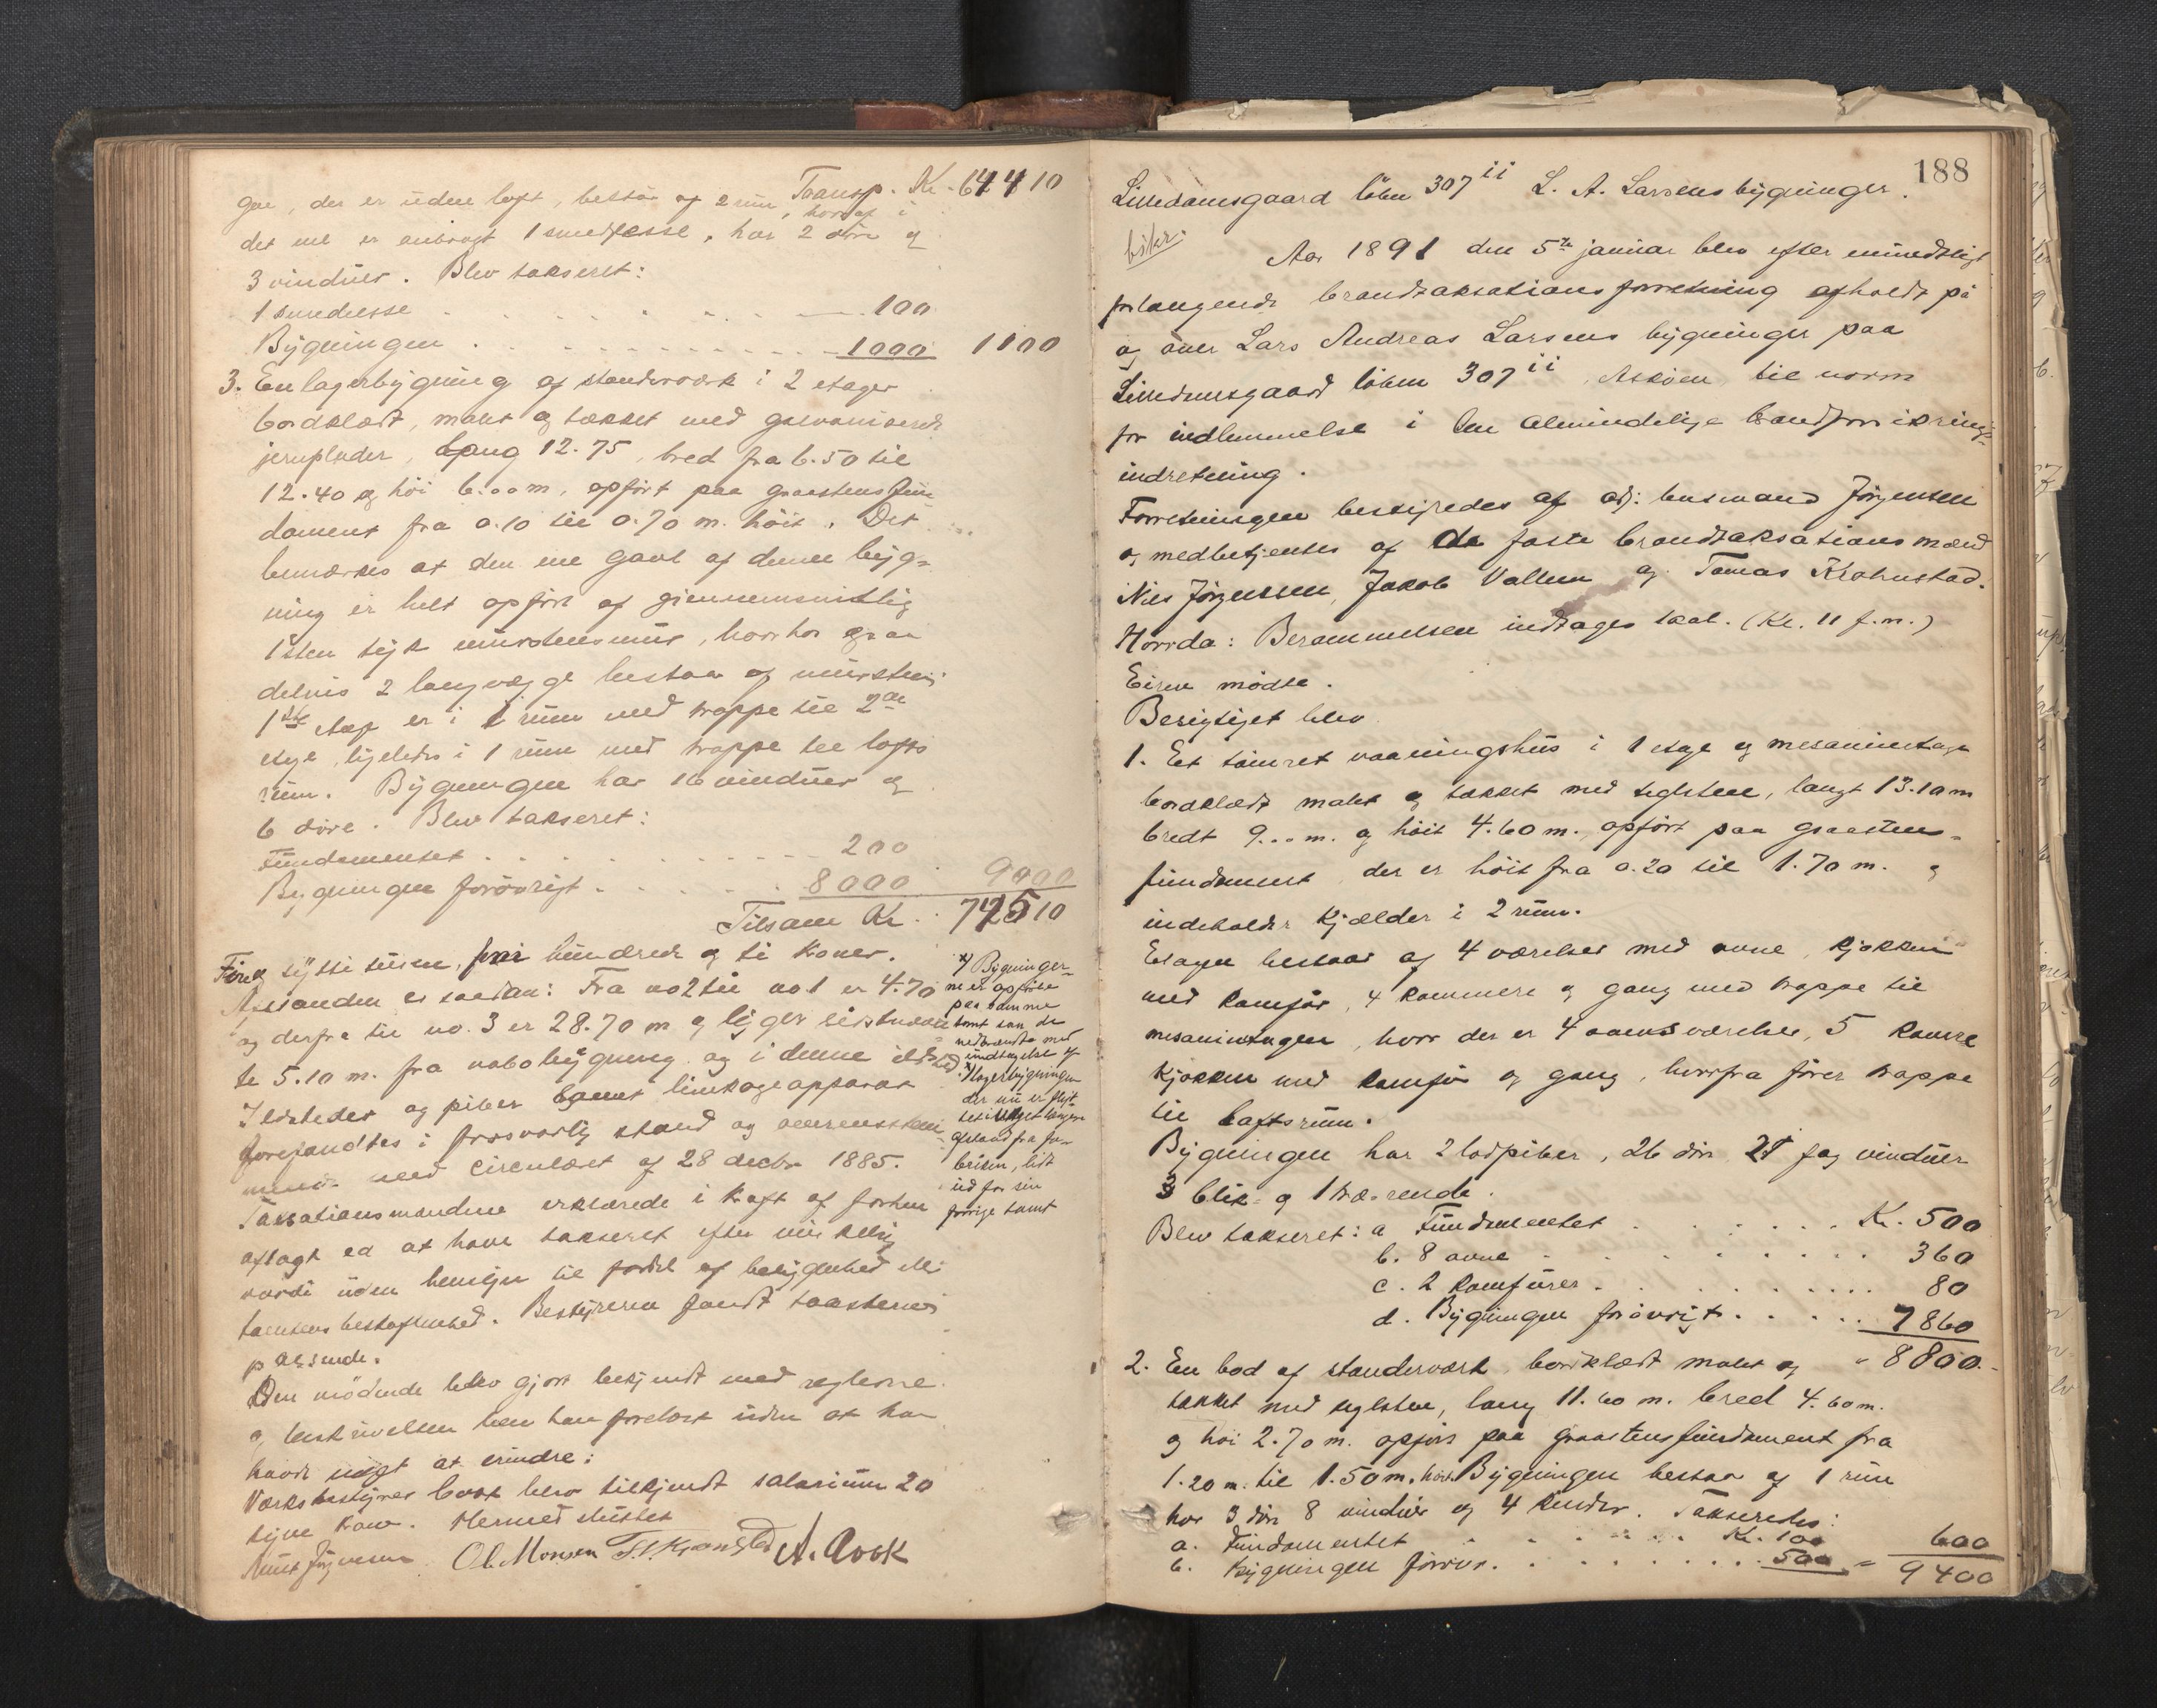 Transp. Kr. 64410
gen, der er uden loft, består af 2 rum, hvoraf i
det ene er anbragt 1 smedesse, har 2 döre og
3 vinduer. Blev takseret:
1 smedesse . . . . . . . 100
Bygningen . . . . . . . 1000 1100
3. En lagerbygning af standerværk i 2 etager
bordklædt, malet og tækket med galvaniserede
jernplader, lang 12.75, bred fra 6.50 til
12.40 og höi 6.00 m, opfört paa graastensfun
dament fra 0.10 til 0.70 m. höit. Det
bemærkes at den ene gavl af denne byg-
ning er helt opfört af giennemsnitlig
1 sten tyk murstensmur,
delvis 2 langvægge bestaar af mursten
1ste etage er i 1 rum med trappe til 2den
etage, ligeledes i 1 rum med trappe til lofts
rum. Bygningen har 16 vinduer og
6 döre. Blev takseret:
Fundamentet . . . . . . . 200
Bygningen forövrigt . . . . . . 8000 9000
Tilsam Kr. 72510
sytti tusen, hundrede og ti kroner.
Afstanden er saadan: Fra no 2 til no 1 er 4.70
og derfra til no. 3 er 28.70 m og ligger sidstnævn
te 5.10 m. fra nabobygning og i denne ildsted
Ildsteder og piber samt
forefandtes i forsvarlig stand og overensstem
mende med circulæret af 28 decbr 1885.
Taksationsmændene erklærede i kraft af forhen
aflagt ed at have takseret efter virkelig
værdi uden hensyn til fordel af beliggenhed eller
tomtens beskaffenhed. Bestyreren fandt taksterne
passende.
Den mödende blev gjort bekjendt med reglerne
og beskrivelsen blev ham forelæst uden at han
havde noget at erindre.
Værksbestyrer Cook blev tilkjendt salarium 20
tyve kroner. Hermed sluttet
Knut Jörgensen Ol. Monsen A. Cook
*) Bygninger-
ne er opförte
paa samme
tomt som de
nedbrændte med
undtagelse af
lagerbygningen
der nu er flyt-
tet
afstand fra fa-
briken, lidt
ud for sin
forrige tomt
188
Lilledamsgaard löbn 307 ii L. A. Larsens bygninger.
Aar 1891 den 5te januar blev efter mundtligt
forlangende brandtaksationsforretning afholdt på
og over Lars Andreas Larsens bygninger paa
Lilledamsgaard löbn 307 ii, Asköen, til norm
for indlemmelse i den almindelige brandforsikrings-
indretning.
Forretningen bestyredes af adj: lensmand Jörgensen
og medbetjentes af de faste brandtaksationsmænd
Nils Jörgensen, Jakob Vallem og Tomas Krohnstad.
Hvorda: Berammelsen indtages skal. (Kl. 11 f.m.)
Eieren mödte.
Besigtiget blev
1. Et tömret vaaningshus i 1 etage og mesaninetage
bordklædt malet og tækket med teglsten, langt 13.10 m
bredt 9.00 m. og höit 4.60 m., opfört paa graastens-
fundament, der er höit fra 0.20 til 1.70 m. og
indeholder kjælder i 2 rum.
Etagen bestaar af 4 værelser med ovne, kjökken
med komfür, 4 kammere og gang med trappe til
mesaninetagen, hvor der er 4 ovnsværelser, 5 kamre
kjökken med komfür og gang, hvorfra förer trappe
til loftsrum.
Bygningen har 2 lodpiber, 26 döre, 21 fag vinduer
3 blik- og 1 trærende.
Blev takseret: a Fundamentet . . . . . . Kr. 500
b. 8 ovne . . . . . . . 360
c. 2 komfürer . . . . . . . 80
d. Bygningen forövrigt . . . . . 7860
" 8800.-
2. En bod af standerværk, bordklædt malet og
tækket med teglsten, lang 11.60 m. bred 4.60 m.
og höi 2.70 m. opfört paa graastensfundament fra
1.20 m. til 1.50 m. höit. Bygningen bestaar af 1 rum
har 3 döre 8 vinduer og 4 . Takseredes:
a. Fundamentet . . . . . . Kr. 100
b. Bygningen forövr. . . . . . . 500 = 600
9400